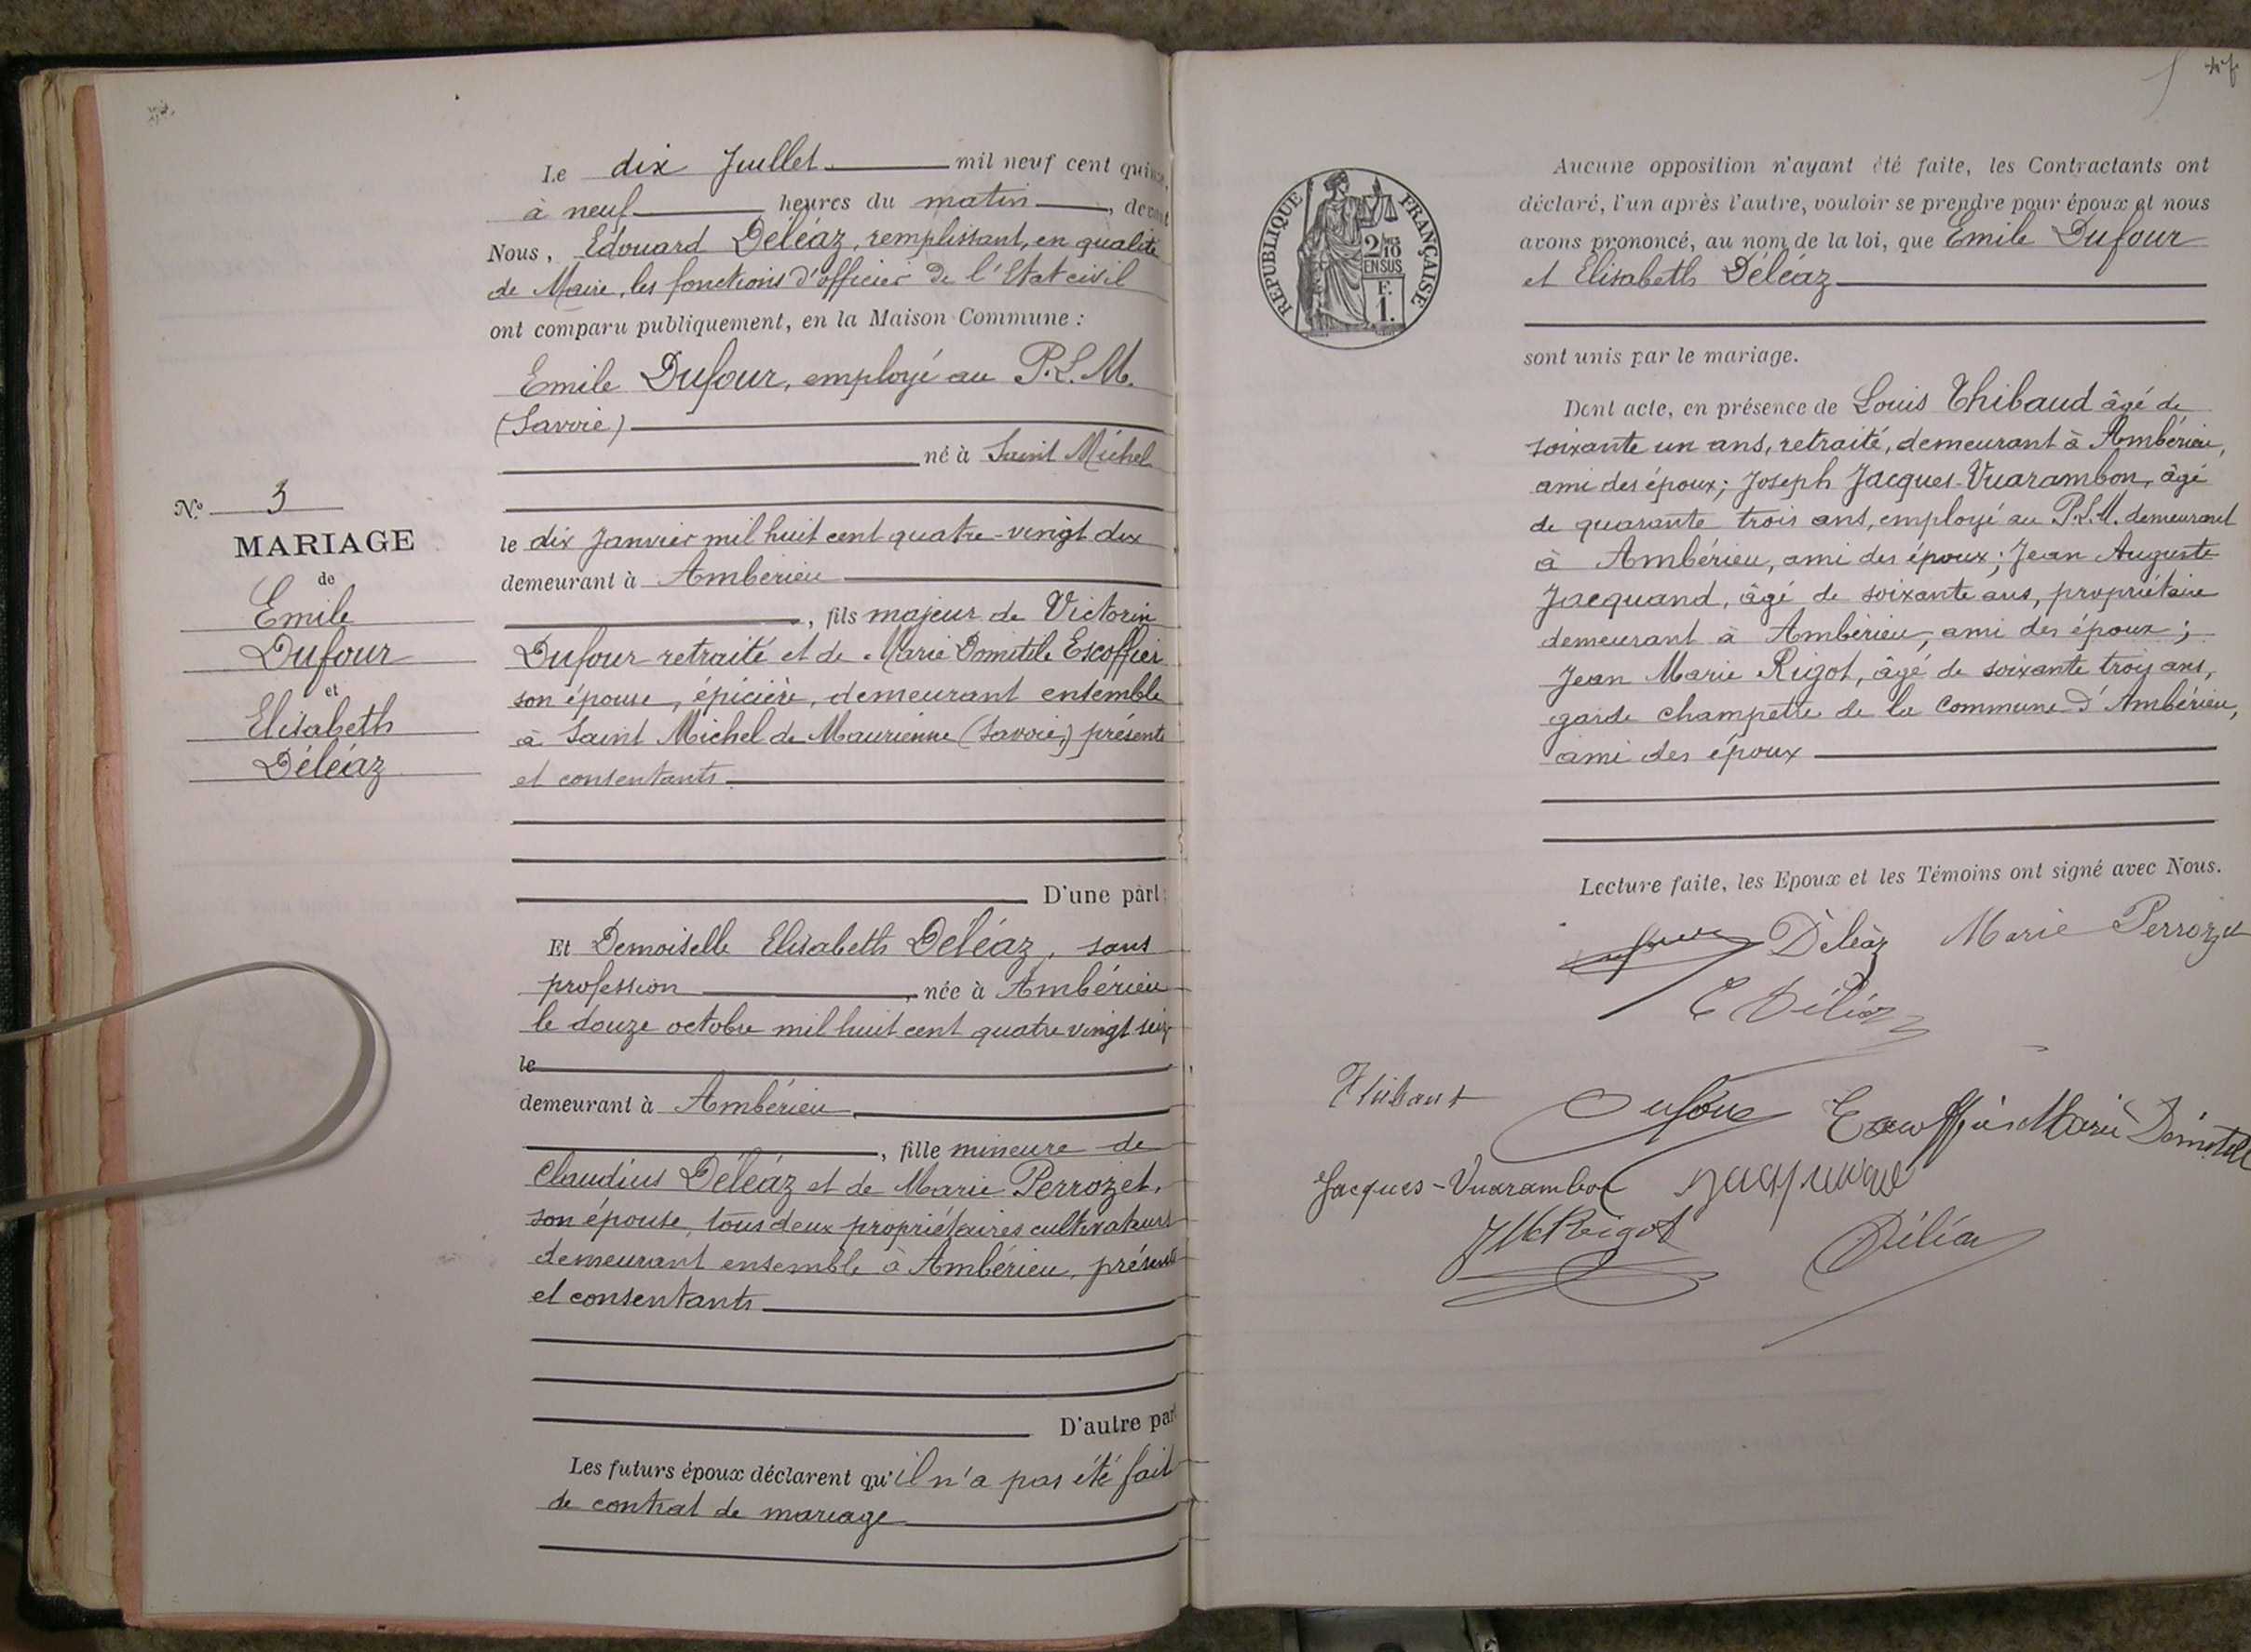 Le dix Juillet mil neuf cent quinze,
à neuf heures du matin, devant
Nous, Edouard Déléaz, remplissant, en qualité
de Maire, les fonctions d'officier de l'Etat civil
ont comparu publiquement, en la Maison Commune :
Emile Dufour, employé au P.L.M.
(Savoie)
né à Saint Michel
le dix Janvier mil huit cent quatre-vingt dix
demeurant à Ambérieu
, fils majeur de Victorin
Dufour retraité et de Marie Domitile Escoffier
son épouse, épicière, demeurant ensemble
à Saint Michel de Maurienne (Savoie,) présents
et consentants
D'une part;
N° 3
MARIAGE
de
Emile
Dufour
et
Elisabeth
Déléaz
Et Demoiselle Elisabeth Déléaz, sans
profession, née à Ambérieu
le douze octobre mil huit cent quatre vingt seize
le
demeurant à Ambérieu
, fille mineure de
Claudius Déléaz et de Marie Perrozet,
son épouse, tous deux propriétaires cultivateurs
demeurant ensemble à Ambérieu, présents
et consentants
D'autre part
Les futurs époux déclarent qu'il n'a pas été fait
de contrat de mariage
RÉPUBLIQUE FRANÇAISE
2/10
EN SUS
F.
1.
Aucune opposition n'ayant été faite, les Contractants ont
déclaré, l'un après l'autre, vouloir se prendre pour époux et nous
avons prononcé, au nom de la loi, que Emile Dufour
et Elisabeth Déléaz
sont unis par le mariage.
Dont acte, en présence de Louis Thibaud âgé de
soixante un ans, retraité, demeurant à Ambérieu,
ami des époux; Joseph Jacques-Vuarambon, âgé
de quarante trois ans, employé au P.L.M. demeurant
à Ambérieu, ami des époux; Jean Auguste
Jacquand, âgé de soixante ans, propriétaire
demeurant à Ambérieu, ami des époux;
Jean Marie Rigot, âgé de soixante trois ans,
garde champêtre de la Commune d'Ambérieu,
ami des époux
Lecture faite, les Epoux et les Témoins ont signé avec Nous.
Dufour Déléaz Marie Perrozet
E Déléaz
Thibaut Dufour Escoffier Marie Domitile
Jacques-Vuarambon Jacquand
JM Rigot Déléaz